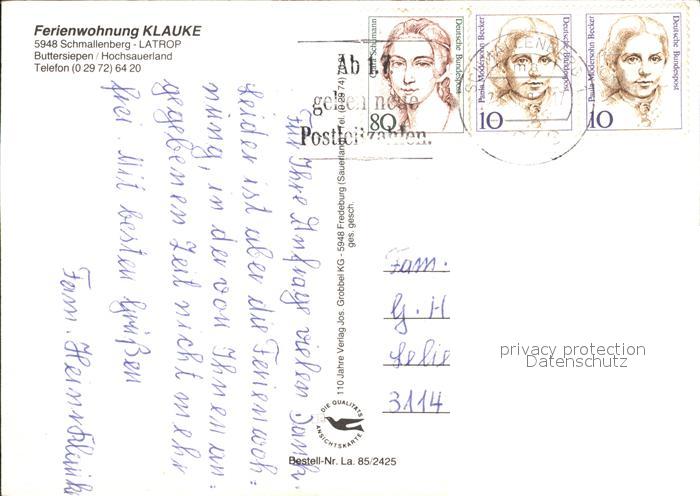 Ferienwohnung KLAUKE
5948 Schmallenberg - LATROP
Buttersiepen / Hochsauerland
Telefon (0 29 72) 64 20
Für Ihre Anfrage vielen Dank.
Leider ist aber die Ferienwoh=
nung, in der von Ihnen an=
gegebenen Zeit nicht mehr
frei. Mit besten Grüßen
Fam. Heinr. Klauke
110 Jahre Verlag Jos. Grobbel KG - 5948 Fredeburg (Sauerland) Tel. (0 29 74)
ges. gesch.
Ab 1.7.
gelten neue
Postleitzahlen.
Clara Schumann
Deutsche Bundespost
80
Paula Modersohn-Becker
Deutsche Bundespost
10
Paula Modersohn-Becker
Deutsche Bundespost
10
Fam.
G. H
3114
privacy protection
Datenschutz
DIE QUALITÄTS
ANSICHTSKARTE
Bestell-Nr. La. 85/2425